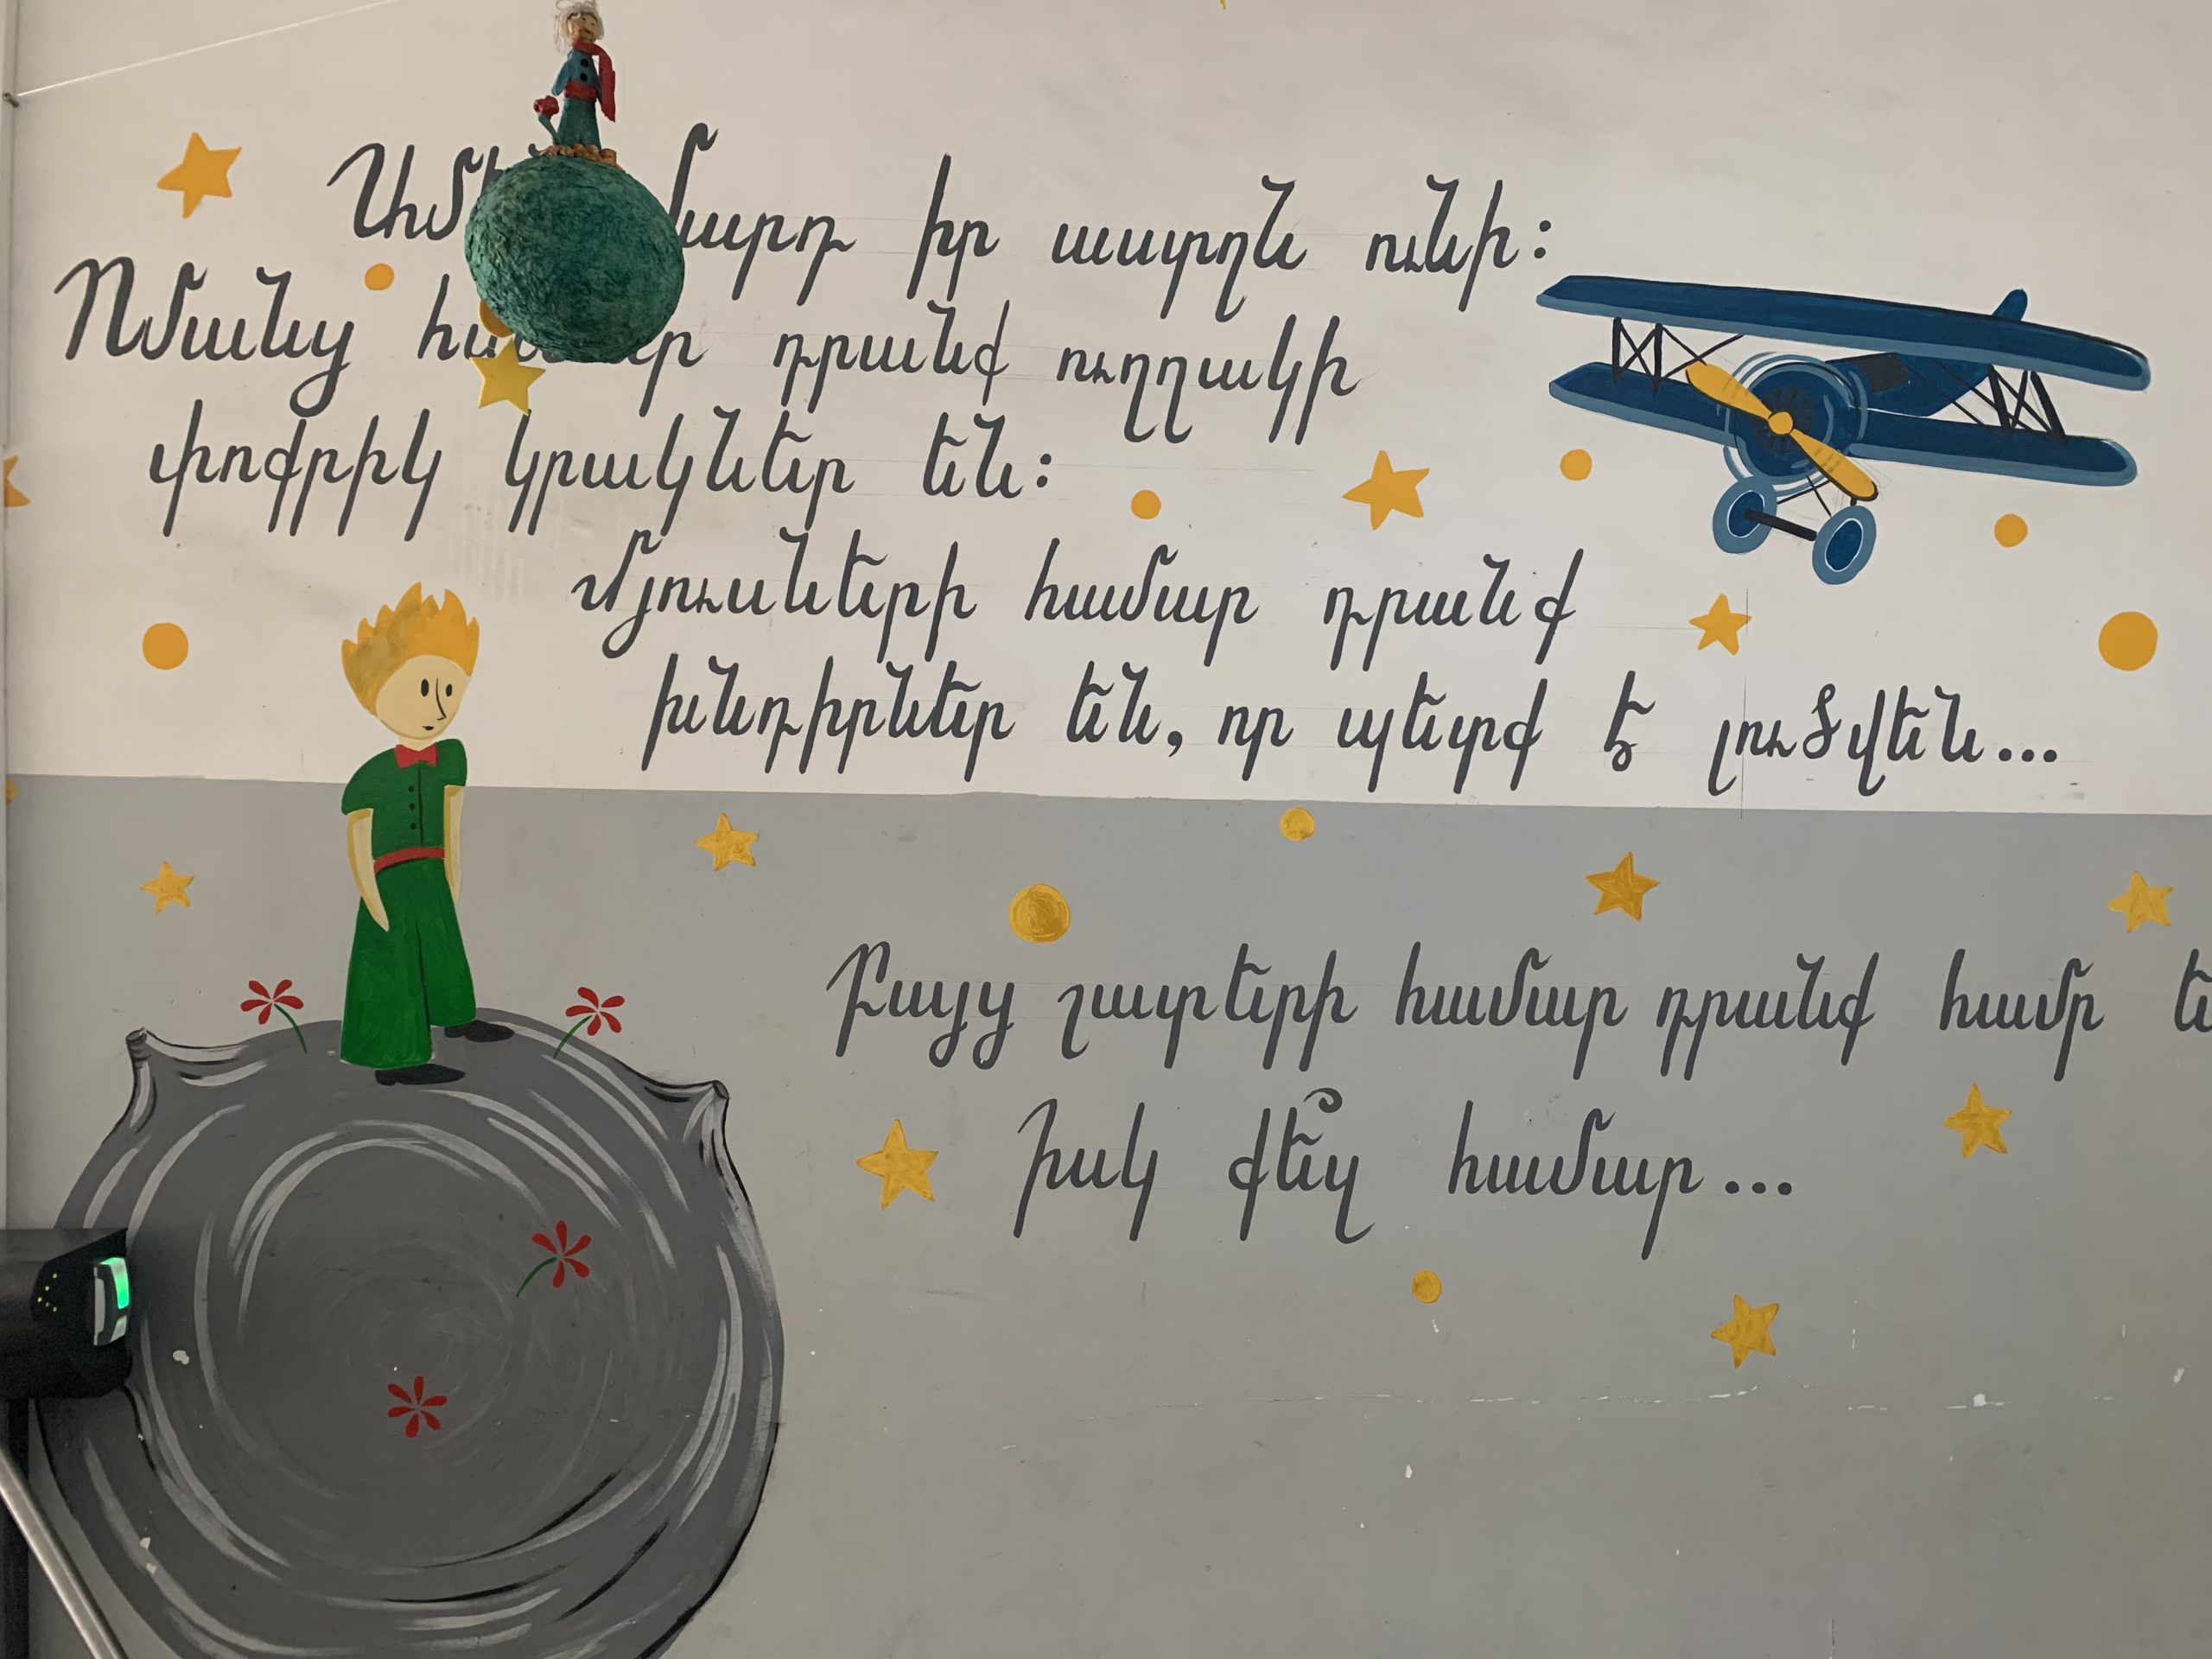 մարդ իր աստղն ունի:
Ոմանց համար դրանք ուղղակի
փոքրիկ կրակներ են:
մյուսների համար դրանք
խնդիրներ են, որ պետք է լուծվեն...
Բայց շատերի համար դրանք համր
Իսկ քե՞զ համար...